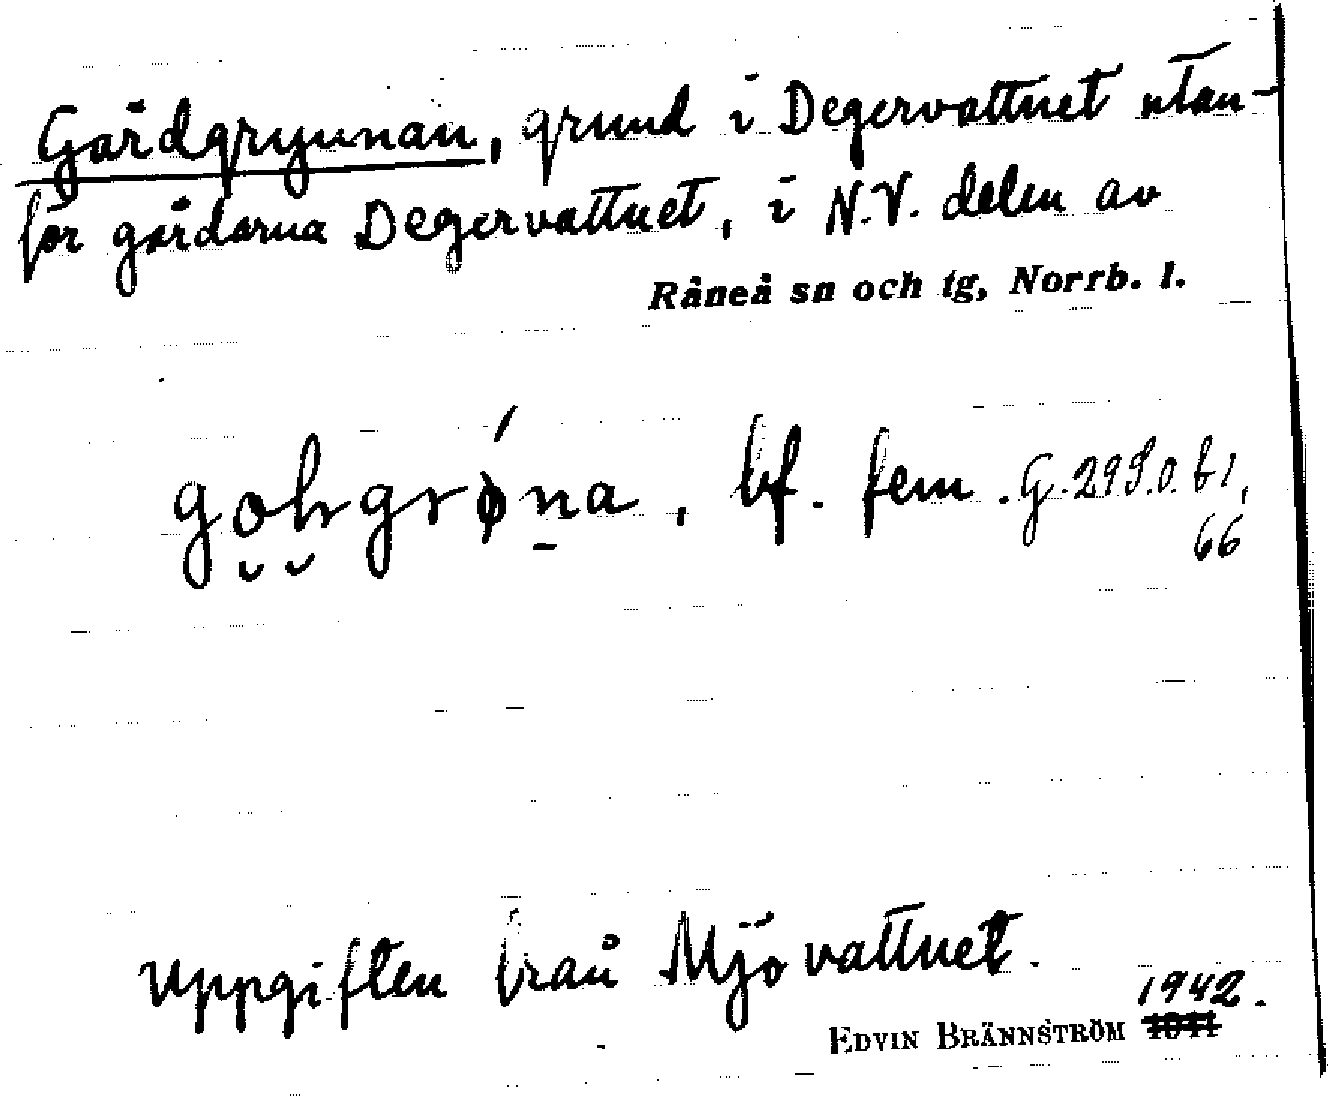 Gårdgrynnan, grund i Degervattnet utan-
för gårdarna Degervattnet, i N.V. delen av
Råneå sn och tg, Norrb. l.
bf. fem. G.
66
Uppgiften från Mjövattnet.
1942.
EDVIN BRÄNNSTRÖM 1941